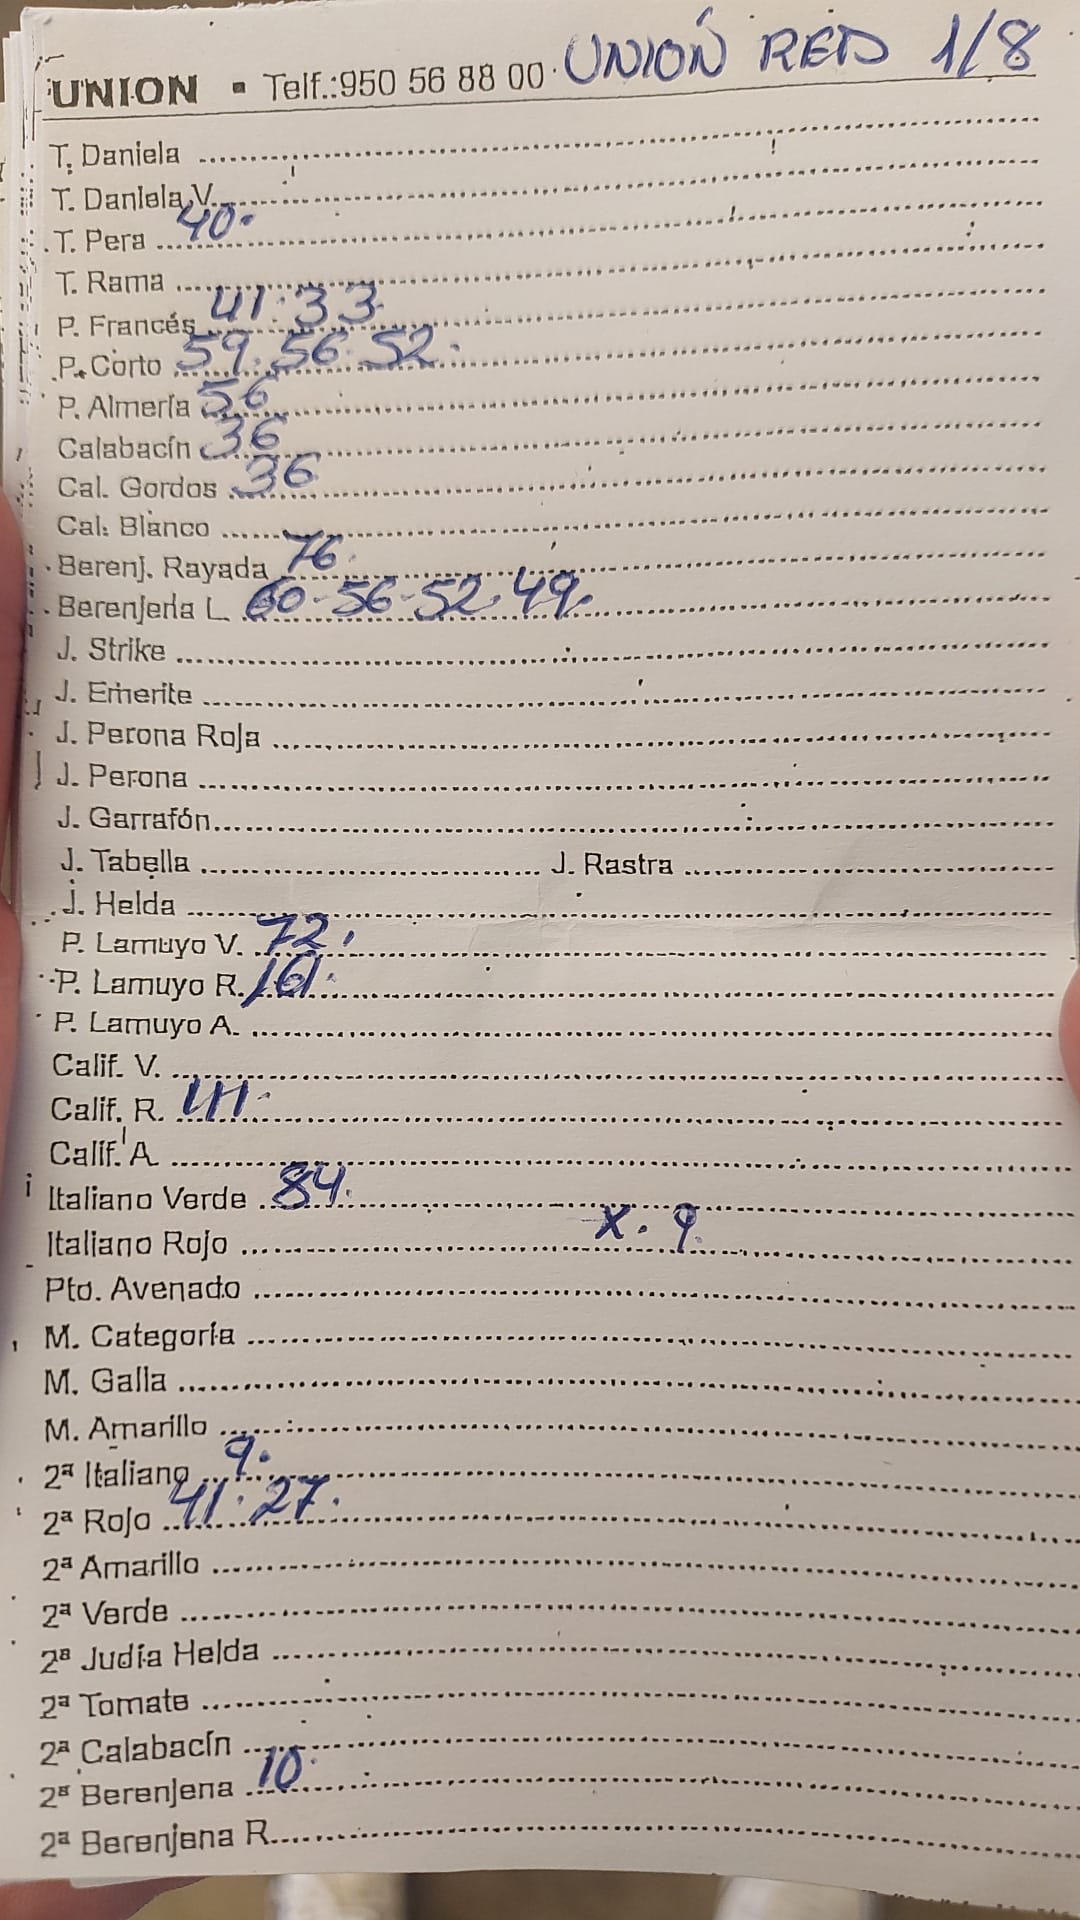 UNION ▪ Telf.:950 56 88 00 UNIÓN RED 1/8
T. Daniela
T. Daniela V.
T. Pera 40.
T. Rama
P. Francés 41. 33
P. Corto 59. 56. 52.
P. Almería 56
Calabacín 36
Cal. Gordos 36
Cal. Blanco
Berenj. Rayada 76.
Berenjena L. 60-56-52. 49.
J. Strike
J. Emerite
J. Perona Roja
J. Perona
J. Garrafón
J. Tabella J. Rastra
J. Helda
P. Lamuyo V. 72.
P. Lamuyo R. 161.
P. Lamuyo A.
Calif. V.
Calif. R. 141.
Calif. A
Italiano Verde 84.
Italiano Rojo X. 9.
Pto. Avenado
M. Categoría
M. Galia
M. Amarillo
2ª Italiano 9.
2ª Rojo 41. 27.
2ª Amarillo
2ª Verde
2ª Judía Helda
2ª Tomate
2ª Calabacín
2ª Berenjena 10.
2ª Berenjena R.